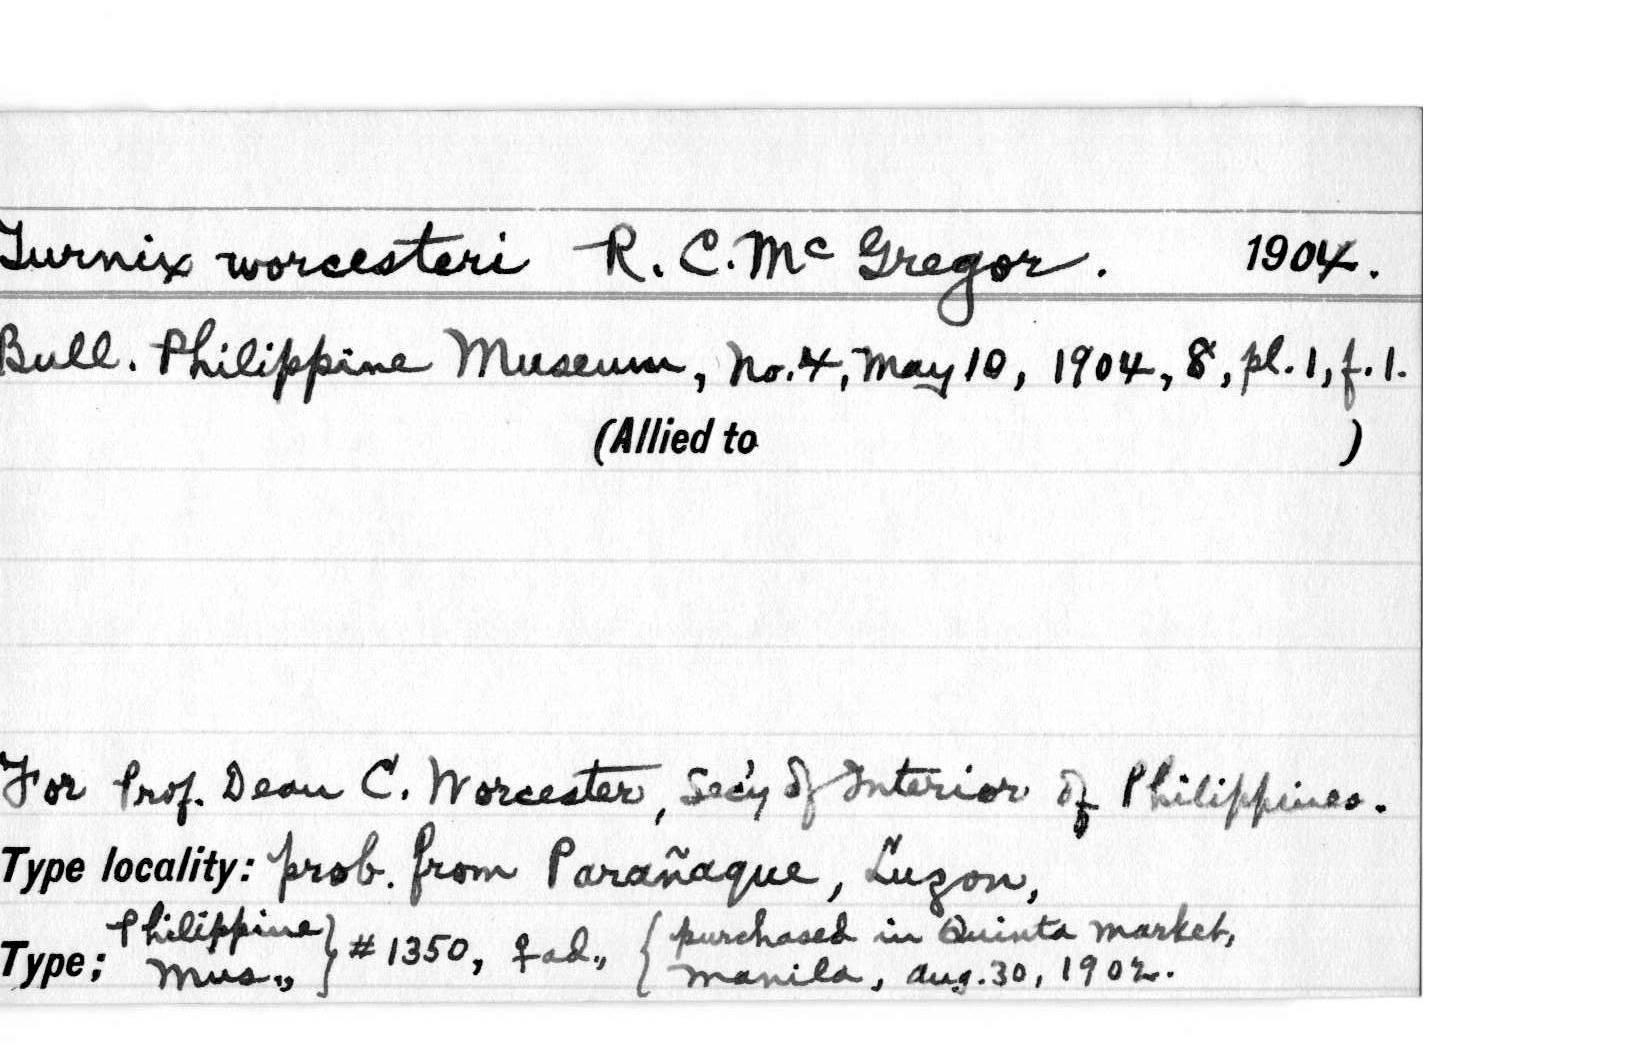 Turnix worcesteri R. C. McGregor. 1904.
Bull. Philippine Museum, No. 4, May 10, 1904, 8, pl. 1, f. 1.
(Allied to )
For Prof. Dean C. Worcester, Sec'y of Interior of Philippines.
Type locality: prob. from Parañaque, Luzon,
Type; Philippine Mus., } #1350, ♀ ad., { purchased in Quinta market,
Manila, Aug. 30, 1902.